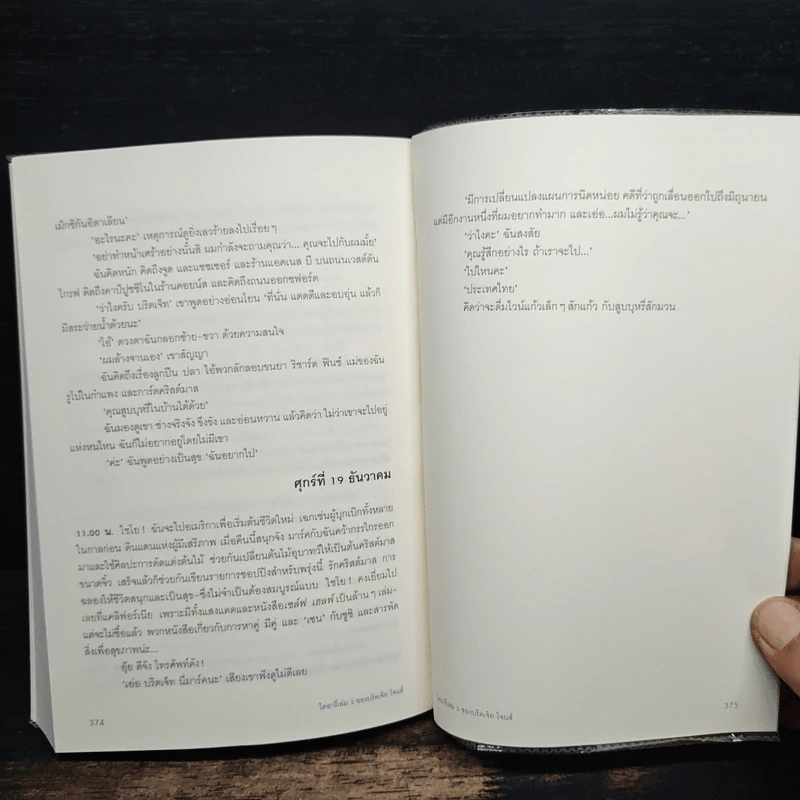 เม้กซิกันอิตาเลียน'
'อะไรนะคะ' เหตุการณ์ดูยิ่งเลวร้ายลงไปเรื่อยๆ
'อย่าทำหน้าเศร้าอย่างนั้นสิ ผมกำลังจะถามคุณว่า... คุณจะไปกับผมมั้ย'
ฉันคิดหนัก คิดถึงจูด และแชซเซอร์ และร้านแอคเนส บี บนถนนเวสต์ตัน
โกรฟ คิดถึงคาปูชชิโนในร้านคอยน์ส และคิดถึงถนนออกซฟอร์ด
'ว่าไงครับ บริดเจ็ท' เขาพูดอย่างอ่อนโยน 'ที่นั่น แดดดีและอบอุ่น แล้วก็
มีสระว่ายน้ำด้วยนะ'
'โอ้' ดวงตาฉันกลอกซ้าย-ขวา ด้วยความสนใจ
'ผมล้างจานเอง' เขาสัญญา
ฉันคิดถึงเรื่องลูกปืน ปลา ไอ้พวกลักลอบขนยา ริชาร์ด ฟินช์ แม่ของฉัน
รูโบ๋ในกำแพง และการ์ดคริสต์มาส
'คุณสูบบุหรี่ในบ้านได้ด้วย'
ฉันมองดูเขา ช่างจริงจัง ขึงขัง และอ่อนหวาน แล้วคิดว่า ไม่ว่าเขาจะไปอยู่
แห่งหนไหน ฉันก็ไม่อยากอยู่โดยไม่มีเขา
'ค่ะ' ฉันพูดอย่างเป็นสุข 'ฉันอยากไป'
ศุกร์ที่ 19 ธันวาคม
11.00 น. ไชโย! ฉันจะไปอเมริกาเพื่อเริ่มต้นชีวิตใหม่ เฉกเช่นผู้บุกเบิกทั้งหลาย
ในกาลก่อน ดินแดนแห่งผู้มีเสรีภาพ เมื่อคืนนี้สนุกจัง มาร์คกับฉันคว้ากรรไกรออก
มาและใช้ศิลปะการตัดแต่งต้นไม้ ช่วยกันเปลี่ยนต้นไม้อุบาทว์ให้เป็นต้นคริสต์มาส
ขนาดจิ๋ว เสร็จแล้วก็ช่วยกันเขียนรายการชอปปิงสำหรับพรุ่งนี้ รักคริสต์มาส การ
ฉลองให้ชีวิตสนุกและเป็นสุข-ซึ่งไม่จำเป็นต้องสมบูรณ์แบบ ไชโย! คงเยี่ยมไป
เลยที่แคลิฟอร์เนีย เพราะมีทั้งแสงแดดและหนังสือเซล์ฟ เฮลพ์ เป็นล้านๆ เล่ม-
แต่จะไม่ซื้อแล้ว พวกหนังสือเกี่ยวกับการหาคู่ มีคู่ และ 'เซน' กับซูชิ และสารพัด
สิ่งเพื่อสุขภาพน่ะ...
อุ๊ย ดีจัง โทรศัพท์ดัง!
'เอ่อ บริดเจ็ท นี่มาร์คนะ' เสียงเขาฟังดูไม่ดีเลย
ไดอารี่เล่ม 2 ของบริดเจ็ท โจนส์
374
'มีการเปลี่ยนแปลงแผนการนิดหน่อย คดีที่ว่าถูกเลื่อนออกไปถึงมิถุนายน
แต่มีอีกงานหนึ่งที่ผมอยากทำมาก และเอ่อ...ผมไม่รู้ว่าคุณจะ...'
'ว่าไงคะ' ฉันสงสัย
'คุณรู้สึกอย่างไร ถ้าเราจะไป...'
'ไปไหนคะ'
'ประเทศไทย'
คิดว่าจะดื่มไวน์แก้วเล็กๆ สักแก้ว กับสูบบุหรี่สักมวน
ไดอารี่เล่ม 2 ของบริดเจ็ท โจนส์
375